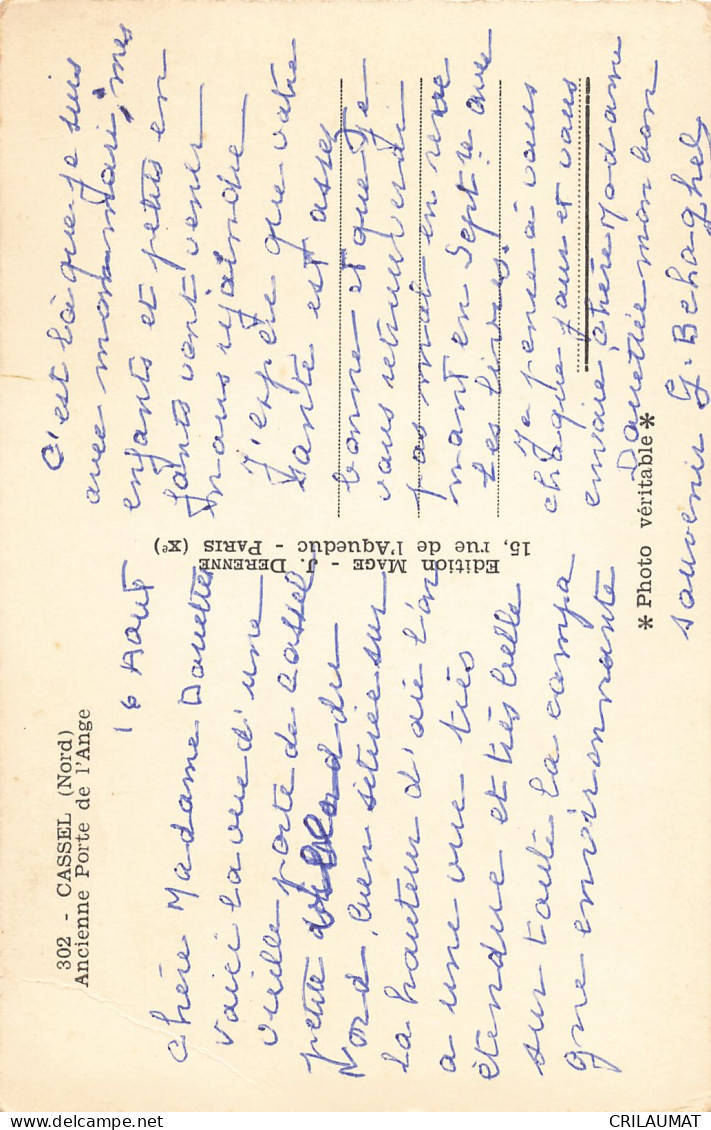 302 - CASSEL (Nord)
Ancienne Porte de l'Ange
16 Aout
Chère Madame Douettée
voici la vue d'une
vieille porte de Cassel
petite du
Nord, bien située sur
la hauteur d'où l'on
a une vue très
étendue et très belle
sur toute la campa
gne environnante
C'est là que je suis
avec mon mari, mes
enfants et petits en
fants vont venir
nous rejoindre
J'espère que votre
santé est assez
bonne et que je
vous retrouverai
pas mal en reve
nant en Sept.re avec
les livres.
Je pense à vous
chaque jour et vous
envoie, chère Madame
Douettée mon bon
souvenir G. Behaghel
Edition MAGE - J. DERENNE
15, rue de l'Aqueduc - PARIS (Xe)
* Photo véritable *
CRILAUMAT